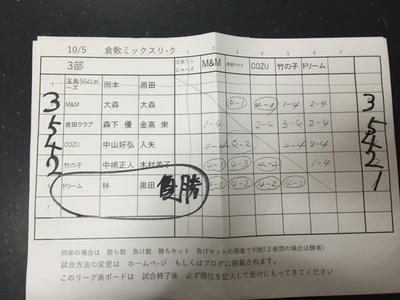 10/5 倉敷ミックスリーク
3部 1 玉島うらにゃ～ズ 2 M&M 3 倉田クラブ 4 COZU 5 竹の子 6 ドリーム
1 玉島うらにゃ～ズ 岡本 原田
3 M&M 大森 大森 4-1 4-0 1-4 2-4 3
5 倉田クラブ 森下 優 金高 栄 1-4 2-4 3-4 2-4 5
4 COZU 中山好弘 入矢 0-4 4-2 2-4 2-4 4
2 竹の子 中嶋正人 木村美子 4-1 4-3 4-2 1-4 2
ドリーム 林 黒田 優勝 4-2 4-2 4-1 1
7
同率の場合は 勝ち数 負け数 勝ちセット 負けセットの順番で判断(2者間の場合は勝者)
試合方法の変更は ホームページ もしくはブログに掲載されます。
このリーグ表ボードは 試合終了後、必ず順位を記入して受付にもってきてください